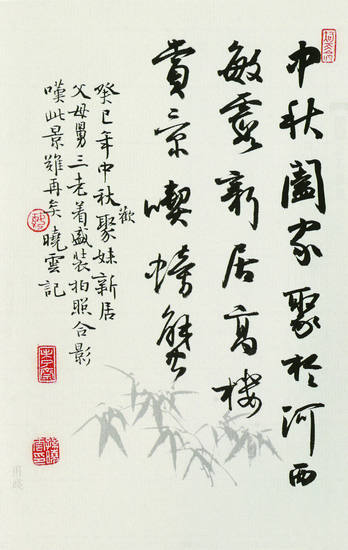 中秋闔家聚於河西
敏霞新居高樓
賞景喫螃蟹
癸巳年中秋歡聚妹新居
父母舅三老着盛裝拍照合影
嘆此景難再矣曉雲記